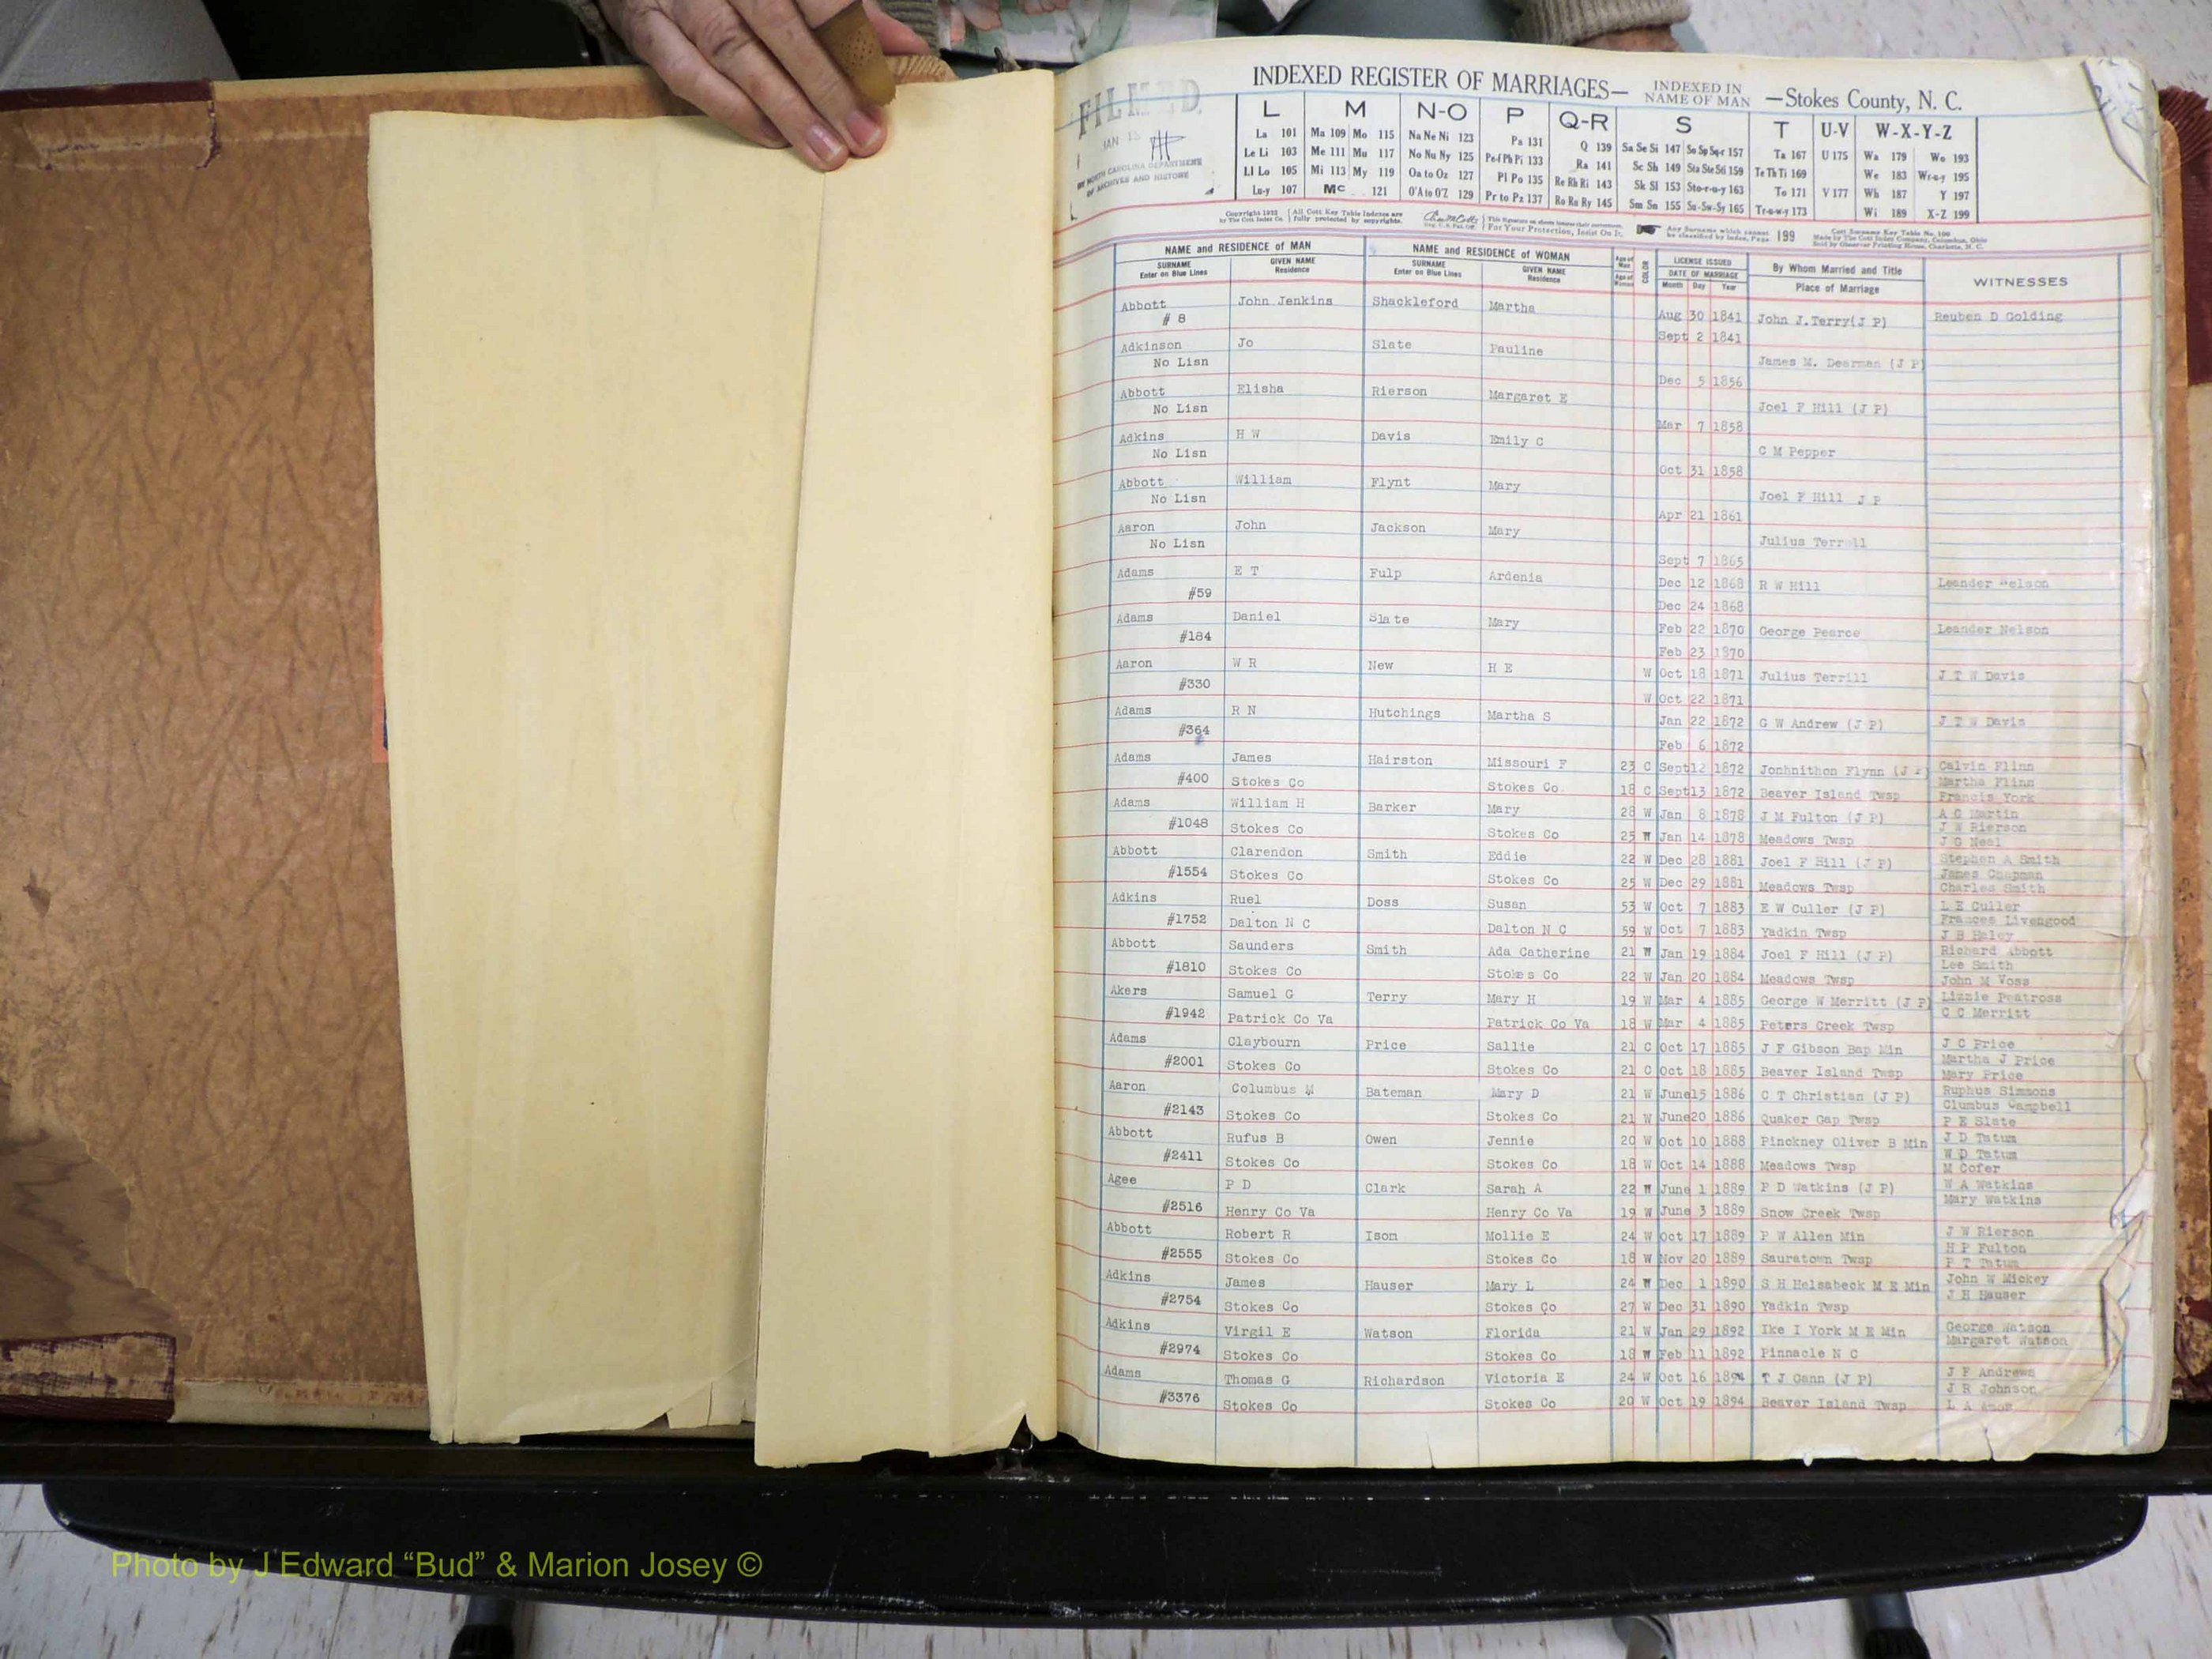 FILMED
JAN 15
BY NORTH CAROLINA DEPARTMENT
OF ARCHIVES AND HISTORY
INDEXED REGISTER OF MARRIAGES— INDEXED IN NAME OF MAN —Stokes County, N. C.
L M N-O P Q-R S T U-V W-X-Y-Z
La 101 Ma 109 Mo 115 Na Ne Ni 123 Pa 131 Q 139 Sa Se Si 147 So Sp Sq-r 157 Ta 167 U 175 Wa 179 Wo 193
Le Li 103 Me 111 Mu 117 No Nu Ny 125 Pe-f Ph Pi 133 Ra 141 Sc Sh 149 Sta Ste Sti 159 Te Th Ti 169 We 183 Wr-u-y 195
Ll Lo 105 Mi 113 My 119 Oa to Oz 127 Pl Po 135 Re Rh Ri 143 Sk Sl 153 Sto-r-u-y 163 To 171 V 177 Wh 187 Y 197
Lu-y 107 Mc 121 O'A to O'Z 129 Pr to Pz 137 Ro Ru Ry 145 Sm Sn 155 Su-Sw-Sy 165 Tr-u-w-y 173 Wi 189 X-Z 199
Copyright 1932 by The Cott Index Co. All Cott Key Table Indexes are fully protected by copyrights. For Your Protection, Insist On It. Any Surname which cannot be classified by Index, Page 199 Cott Surname Key Table No. 100
Made by The Cott Index Company, Columbus, Ohio
Sold by Observer Printing House, Charlotte, N. C.
NAME and RESIDENCE of MAN NAME and RESIDENCE of WOMAN Age of Man COLOR LICENSE ISSUED By Whom Married and Title WITNESSES
SURNAME GIVEN NAME SURNAME GIVEN NAME Age of Woman DATE OF MARRIAGE Place of Marriage
Enter on Blue Lines Residence Enter on Blue Lines Residence Month Day Year
Abbott John Jenkins Shackleford Martha Aug 30 1841 John J.Terry(J P) Reuben D Golding
# 8 Sept 2 1841
Adkinson Jo Slate Pauline James M. Dearman (J P)
No Lisn Dec 5 1856
Abbott Elisha Rierson Margaret E Joel F Hill (J P)
No Lisn Mar 7 1858
Adkins H W Davis Emily C C M Pepper
No Lisn Oct 31 1858
Abbott William Flynt Mary Joel F Hill J P
No Lisn Apr 21 1861
Aaron John Jackson Mary Julius Terrell
No Lisn Sept 7 1865
Adams E T Fulp Ardenia Dec 12 1868 R W Hill Leander Nelson
#59 Dec 24 1868
Adams Daniel Slate Mary Feb 22 1870 George Pearce Leander Nelson
#184 Feb 23 1870
Aaron W R New H E W Oct 18 1871 Julius Terrill J T W Davis
#330 W Oct 22 1871
Adams R N Hutchings Martha S Jan 22 1872 G W Andrew (J P) J T W Davis
#364 Feb 6 1872
Adams James Hairston Missouri F 23 C Sept 12 1872 Jonhnithon Flynn (J P) Calvin Flinn
Martha Flinn
#400 Stokes Co Stokes Co. 18 C Sept 13 1872 Beaver Island Twsp Francis York
Adams William H Barker Mary 28 W Jan 8 1878 J M Fulton (J P) A G Martin
J W Rierson
#1048 Stokes Co Stokes Co 25 W Jan 14 1878 Meadows Twsp J G Neal
Abbott Clarendon Smith Eddie 22 W Dec 28 1881 Joel F Hill (J P) Stephen A Smith
James Chapman
#1554 Stokes Co Stokes Co 25 W Dec 29 1881 Meadows Twsp Charles Smith
Adkins Ruel Doss Susan 53 W Oct 7 1883 E W Culler (J P) L E Culler
Frances Livengood
#1752 Dalton N C Dalton N C 59 W Oct 7 1883 Yadkin Twsp J B Haley
Abbott Saunders Smith Ada Catherine 21 W Jan 19 1884 Joel F Hill (J P) Richard Abbott
Lee Smith
#1810 Stokes Co Stokes Co 22 W Jan 20 1884 Meadows Twsp John M Voss
Akers Samuel G Terry Mary H 19 W Mar 4 1885 George W Merritt (J P) Lizzie Peatross
C C Merritt
#1942 Patrick Co Va Patrick Co Va 18 W Mar 4 1885 Peters Creek Twsp
Adams Claybourn Price Sallie 21 C Oct 17 1885 J F Gibson Bap Min J C Price
Martha J Price
#2001 Stokes Co Stokes Co 21 C Oct 18 1885 Beaver Island Twsp Mary Price
Aaron Columbus M Bateman Mary D 21 W June 15 1886 C T Christian (J P) Ruphus Simmons
Clumbus Campbell
#2143 Stokes Co Stokes Co 21 W June 20 1886 Quaker Gap Twsp P E Slate
Abbott Rufus B Owen Jennie 20 W Oct 10 1888 Pinckney Oliver B Min J D Tatum
W D Tatum
#2411 Stokes Co Stokes Co 18 W Oct 14 1888 Meadows Twsp M Cofer
Agee P D Clark Sarah A 22 W June 1 1889 P D Watkins (J P) W A Watkins
Mary Watkins
#2516 Henry Co Va Henry Co Va 19 W June 3 1889 Snow Creek Twsp
Abbott Robert R Isom Mollie E 24 W Oct 17 1889 P W Allen Min J W Rierson
H P Fulton
#2555 Stokes Co Stokes Co 18 W Nov 20 1889 Sauratown Twsp P T Tatum
Adkins James Hauser Mary L 24 W Dec 1 1890 S H Helsabeck M E Min John W Mickey
J H Hauser
#2754 Stokes Co Stokes Co 27 W Dec 31 1890 Yadkin Twsp
Adkins Virgil E Watson Florida 21 W Jan 29 1892 Ike I York M E Min George Watson
Margaret Watson
#2974 Stokes Co Stokes Co 18 W Feb 11 1892 Pinnacle N C
Adams Thomas G Richardson Victoria E 24 W Oct 16 1894 T J Gann (J P) J F Andrews
J R Johnson
#3376 Stokes Co Stokes Co 20 W Oct 19 1894 Beaver Island Twsp L A
Photo by J Edward “Bud” & Marion Josey ©